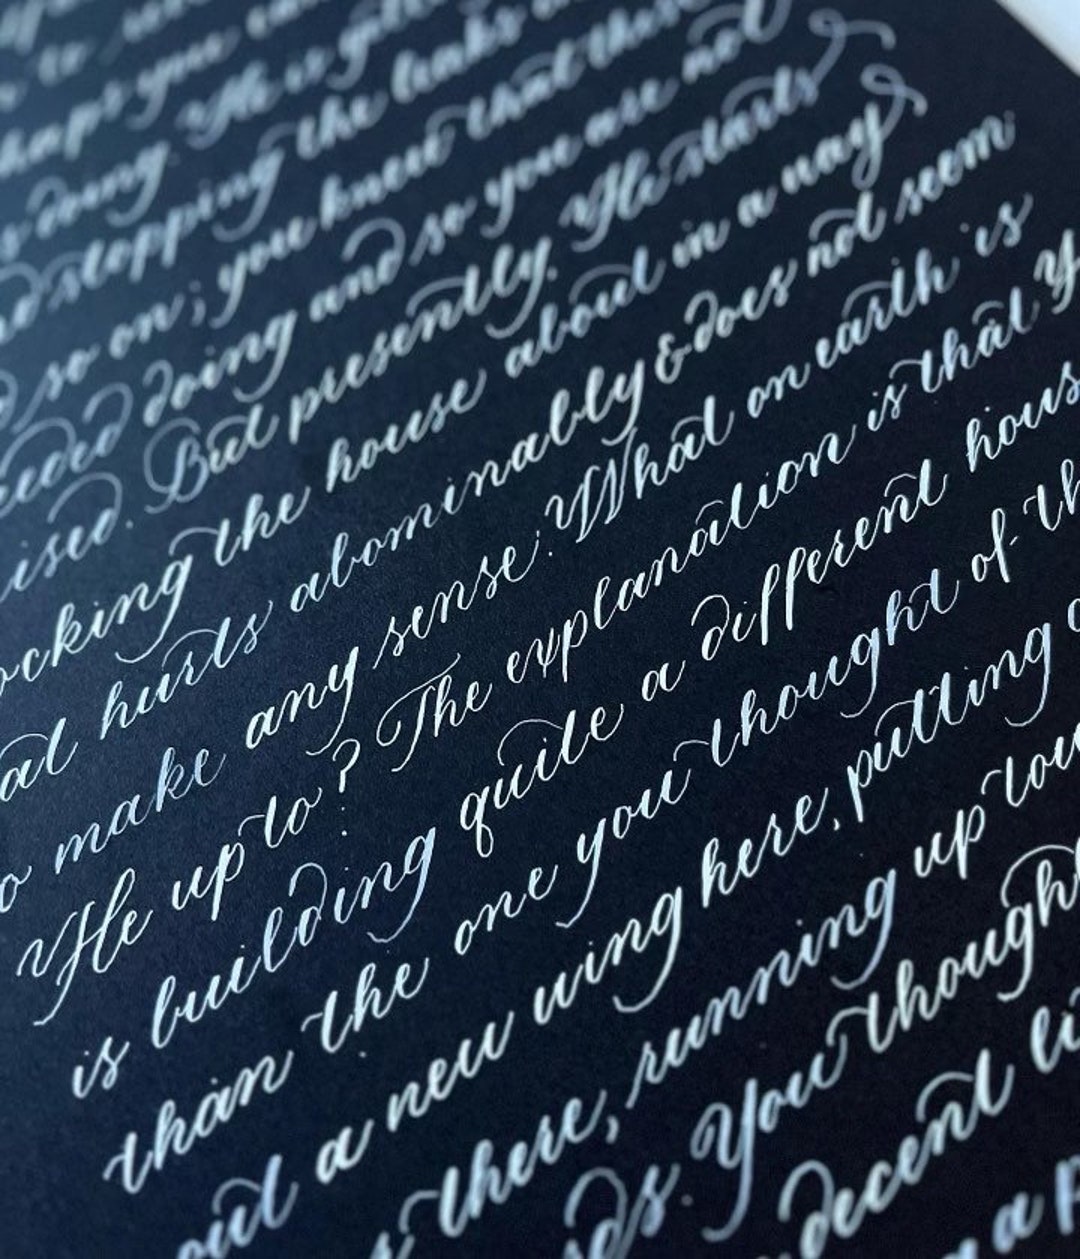 you
doing. He is
stopping the leaks
so on; you knew that those
doing and so you are not
But presently. He starts
the house about in a way
hurts abominably & does not seem
make any sense. What on earth is
He up to? The explanation is that
is building quite a different
than the one you thought of-
out a new wing here, putting
there, running up
You
decent
a